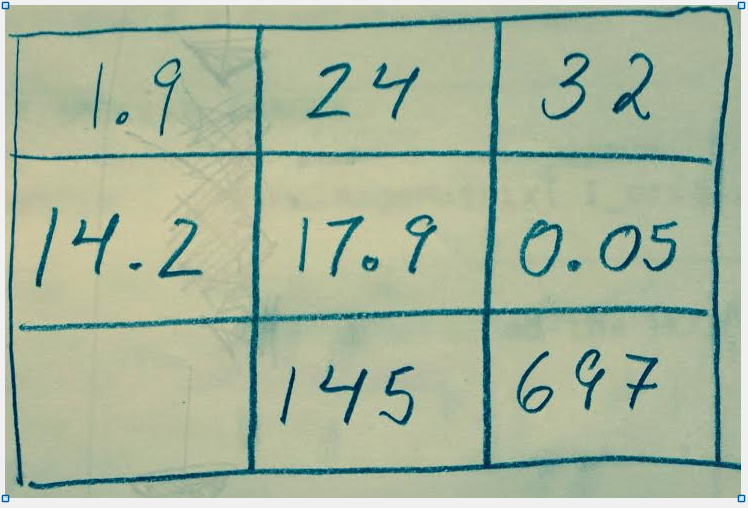 1.9 24 32
14.2 17.9 0.05
145 697